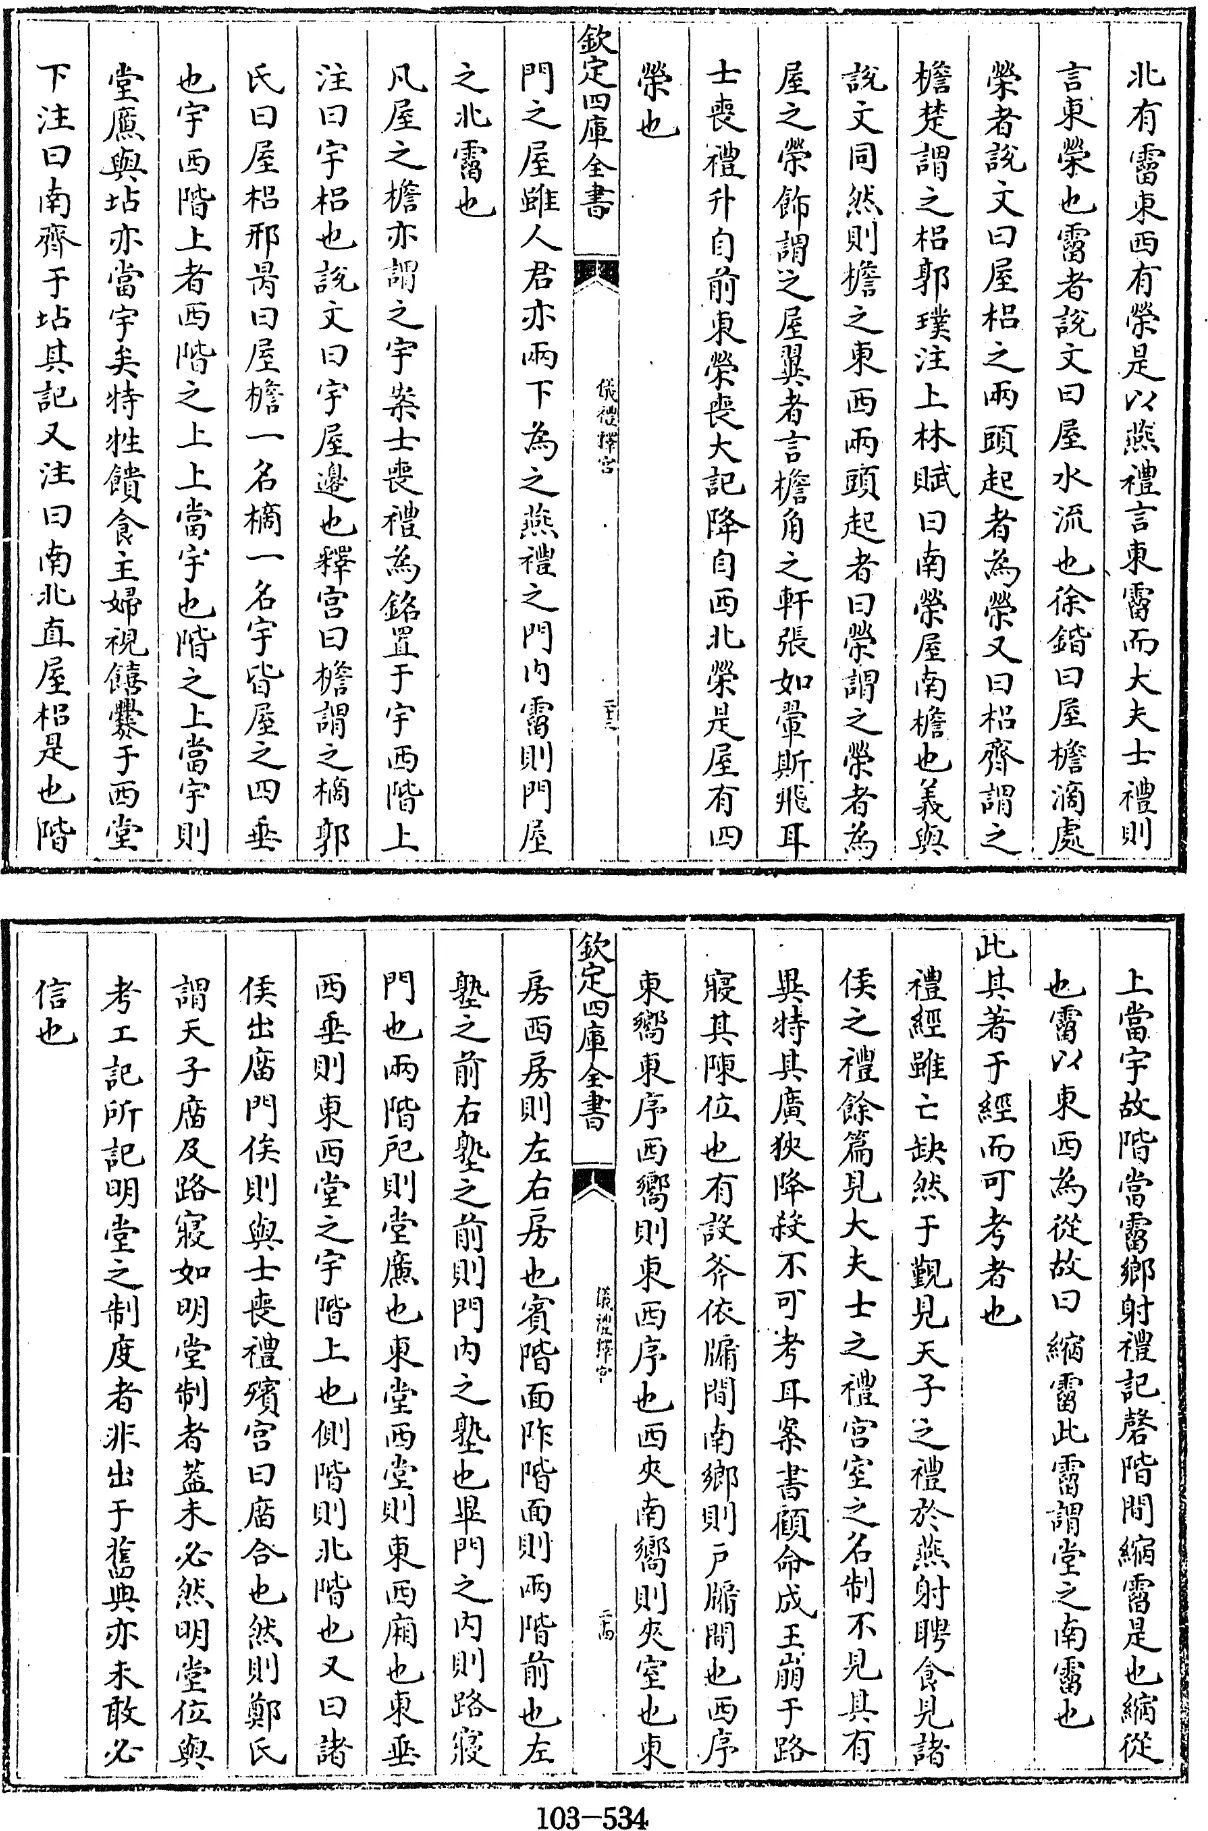 北有霤東西有榮是以燕禮言東霤而大夫士禮則
言東榮也霤者說文曰屋水流也徐鍇曰屋檐滴處
榮者說文曰屋梠之兩頭起者為榮又曰梠齊謂之
檐楚謂之梠郭璞注上林賦曰南榮屋南檐也義與
說文同然則檐之東西兩頭起者曰榮謂之榮者為
屋之榮飾謂之屋翼者言檐角之軒張如翬斯飛耳
士喪禮升自前東榮喪大記降自西北榮是屋有四
榮也
欽定四庫全書
儀禮釋宮
二十三
門之屋雖人君亦兩下為之燕禮之門內霤則門屋
之北霤也
凡屋之檐亦謂之宇案士喪禮為銘置于宇西階上
注曰宇梠也說文曰宇屋邊也釋宮曰檐謂之樀郭
氏曰屋梠邢昺曰屋檐一名樀一名宇皆屋之四垂
也宇西階上者西階之上上當宇也階之上當宇則
堂廉與坫亦當宇矣特牲饋食主婦視饎爨于西堂
下注曰南齊于坫其記又注曰南北直屋梠是也階
上當宇故階當霤鄉射禮記磬階間縮霤是也縮從
也霤以東西為從故曰縮霤此霤謂堂之南霤也
此其著于經而可考者也
禮經雖亡缺然于覲見天子之禮於燕射聘食見諸
侯之禮餘篇見大夫士之禮宮室之名制不見其有
異特其廣狹降殺不可考耳案書顧命成王崩于路
寢其陳位也有設斧依牖間南鄉則戶牖間也西序
東嚮東序西嚮則東西序也西夾南嚮則夾室也東
欽定四庫全書
儀禮釋宮
二十四
房西房則左右房也賓階面阼階面則兩階前也左
塾之前右塾之前則門內之塾也畢門之內則路寢
門也兩階戺則堂廉也東堂西堂則東西廂也東垂
西垂則東西堂之宇階上也側階則北階也又曰諸
侯出廟門俟則與士喪禮殯宮曰廟合也然則鄭氏
謂天子廟及路寢如明堂制者蓋未必然明堂位與
考工記所記明堂之制度者非出于舊典亦未敢必
信也
103-534